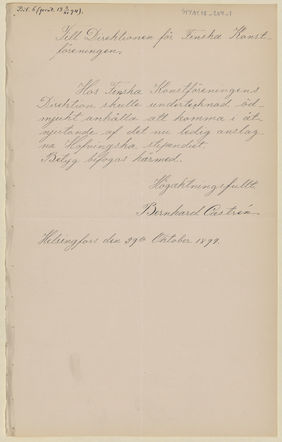 Till Direktionen för Finska Konst
föreningen.
Hos Finska Konstföreningens
Direktion skulle undertecknad öd-
mjukt anhålla att komma i åt-
njutande af det nu ledig anslag-
na Hofningska stipendiet.
Betyg bifogas härmed.
Högaktningsfullt.
Bernhard Castrén.
Helsingfors den 29de Oktober 1894.